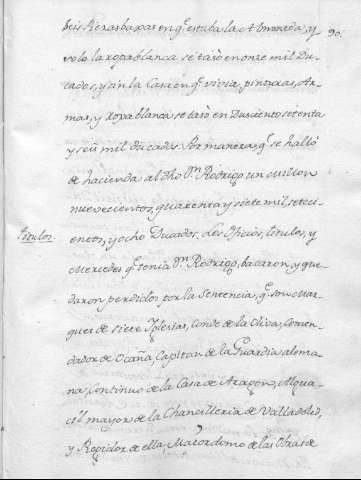 seis Piezas baxas en q.e estuba la Almoneda, y 90.
solo la ropa blanca se tasò en onze mil Du
cados, y sin la Casa en q.e vivia, pinturas, Ar
mas, y ropa blanca se tasò en Dusientos setenta
y seis mil ducados. Por manera, q.e se hallò
de hacienda al dho D.n Rodrigo un millon
nuevecientos, quarenta y siete mil, seteci
entos, y ocho Ducados, los Oficios, titulos, y
titulos
Mercedes q.e tenia D.n Rodrigo, bacaron, y que
daron perdidos por la Sentencia, q.e son Mar
ques de Siete Iglesias, Conde de la Oliva, Comen
dador de Ocaña, Capitan de la Guardia alema
na, Continuo de la Casa de Aragon, Algua
cil mayor de la Chancilleria de Valladolid,
y Regidor de ella, Mayordomo de las Obras de